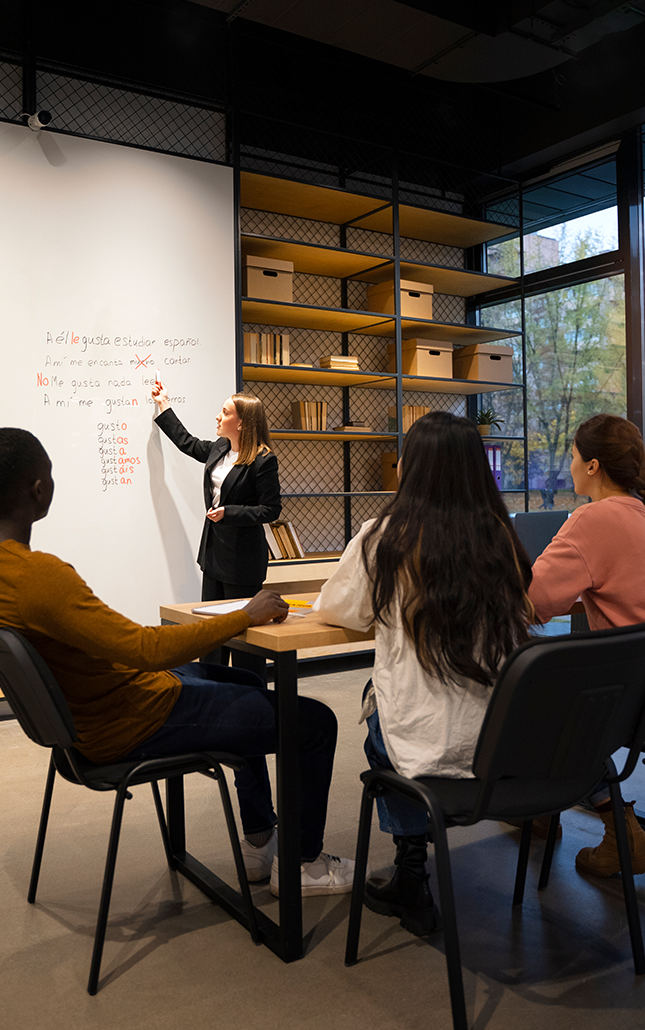 A él le gusta estudiar español.
A mí me encanta cantar
No Me gusta nada
A mi me gustan
gusto
gustas
gusta
gustamos
gustáis
gustan.